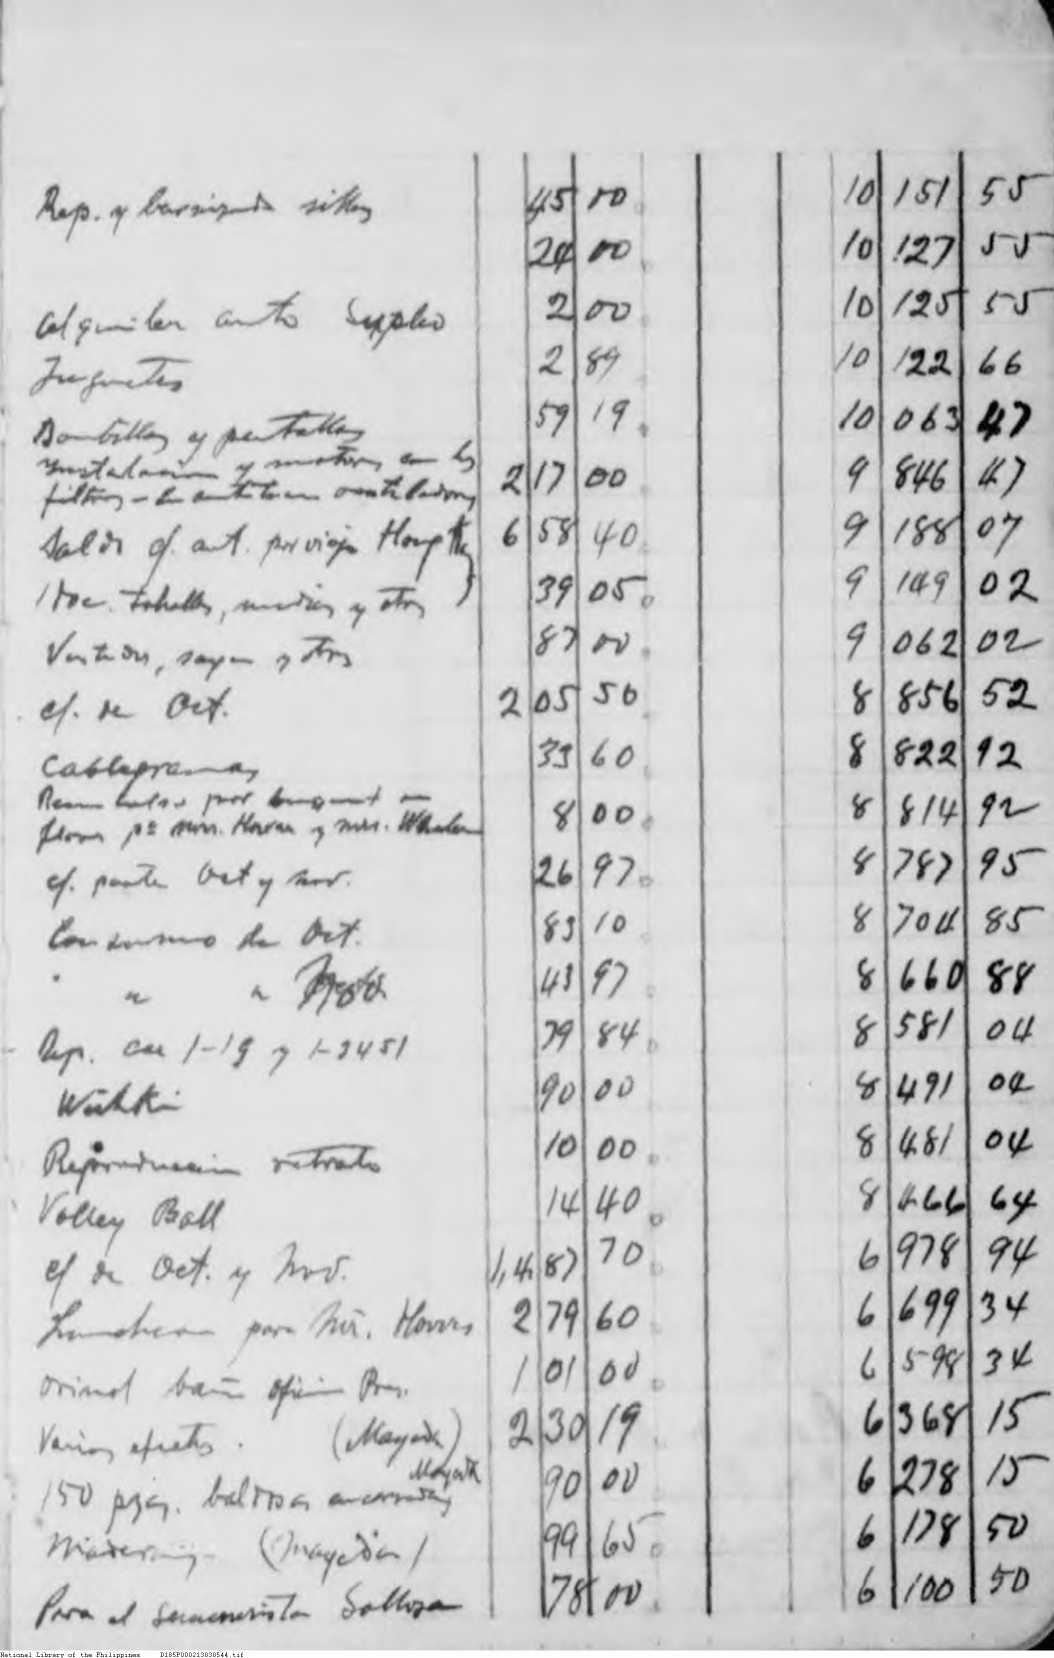 Rep. y barnizada sillas 45 00 10 151 55
24 00 10 127 55
Alquiler auto 2 00 10 125 55
Juguetes 2 89 10 122 66
Bombillas y pantallas 59 19 10 063 47
Instalacion y motores con los
filtros - ventiladores 2 17 00 9 846 47
Saldo cf. ant. por viaje 6 58 40 9 188 07
1 doc. toballas, medias y otros 39 05 9 149 02
Vestidos, sayas y otros 87 00 9 062 02
cf. de Oct. 2 05 50 8 856 52
Cablegramas 33 60 8 822 92
por bouquet
flores pª mrs. y mrs. 8 00 8 814 92
cf. parte Oct y nov. 26 97 8 787 95
Consumo de Oct. 83 10 8 704 85
" " " 43 97 8 660 88
Rep. car 1-19 y 1-3451 79 84 8 581 04
Wishki 90 00 8 491 04
Reproduccion retrato 10 00 8 481 04
Volley Ball 14 40 8 466 64
cf de Oct. y Nov. 1,4 87 70 6 978 94
Luncheon para Mr. 2 79 60 6 699 34
orinol baño oficina Pres. 1 01 00 6 598 34
Varios efectos. 2 30 19 6 368 15
150 pzas. baldosas 90 00 6 278 15
99 65 6 178 50
Para el 78 00 6 100 50
National Library of the Philippines D185P000213030544.tif